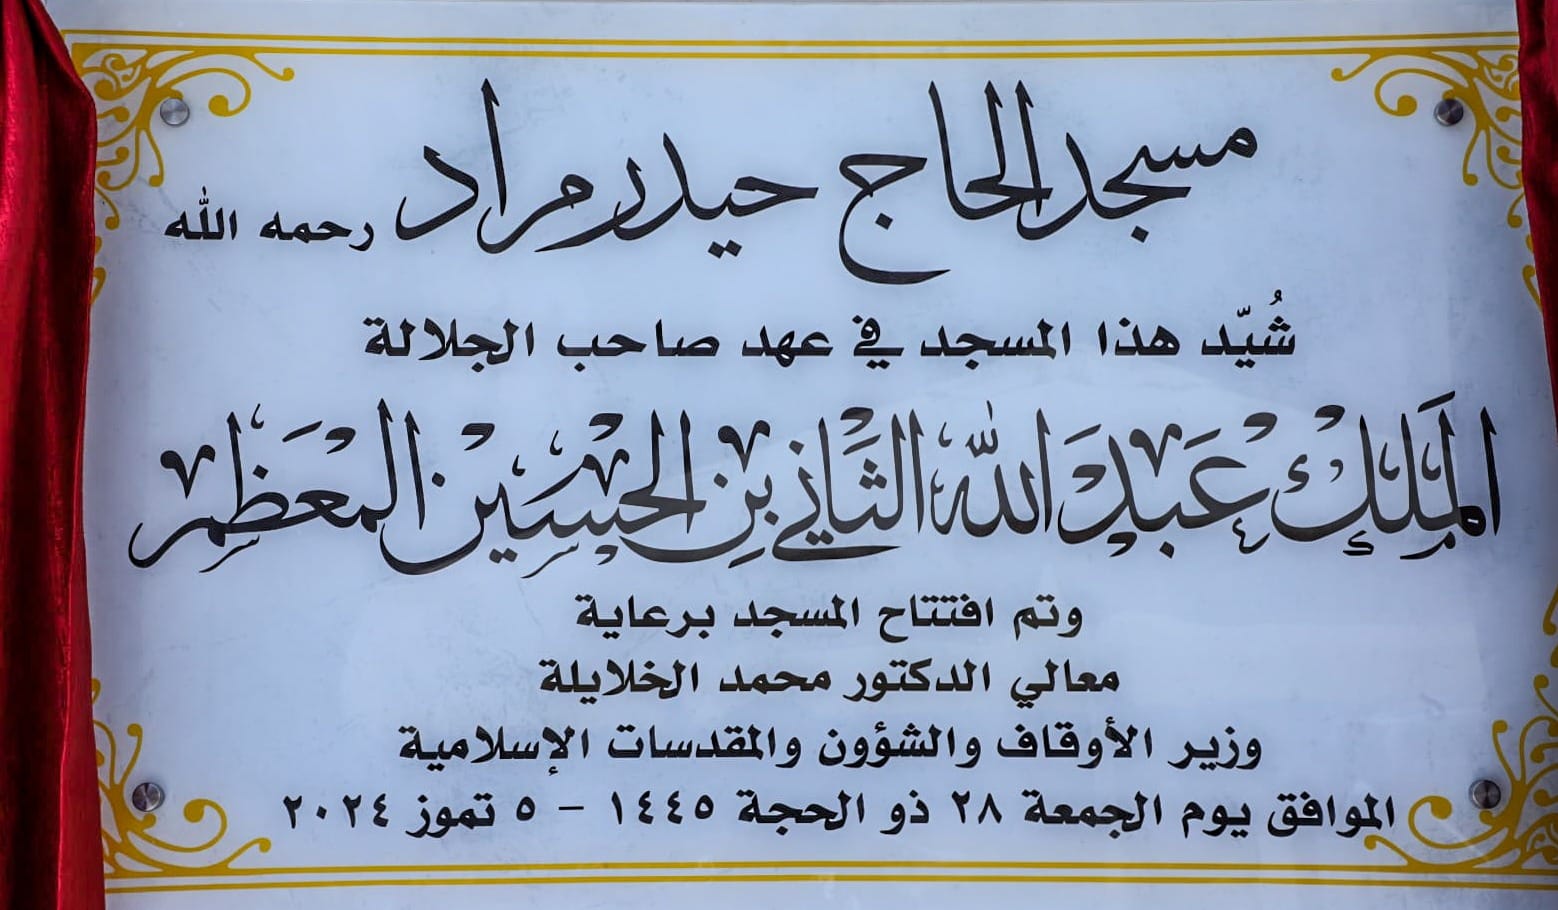 مسجد الحاج حيدر مراد رحمه الله
شُيّد هذا المسجد في عهد صاحب الجلالة
الملك عبد الله الثاني بن الحسين المعظم
وتم افتتاح المسجد برعاية
معالي الدكتور محمد الخلايلة
وزير الأوقاف والشؤون والمقدسات الإسلامية
الموافق يوم الجمعة ٢٨ ذو الحجة ١٤٤٥ - ٥ تموز ٢٠٢٤